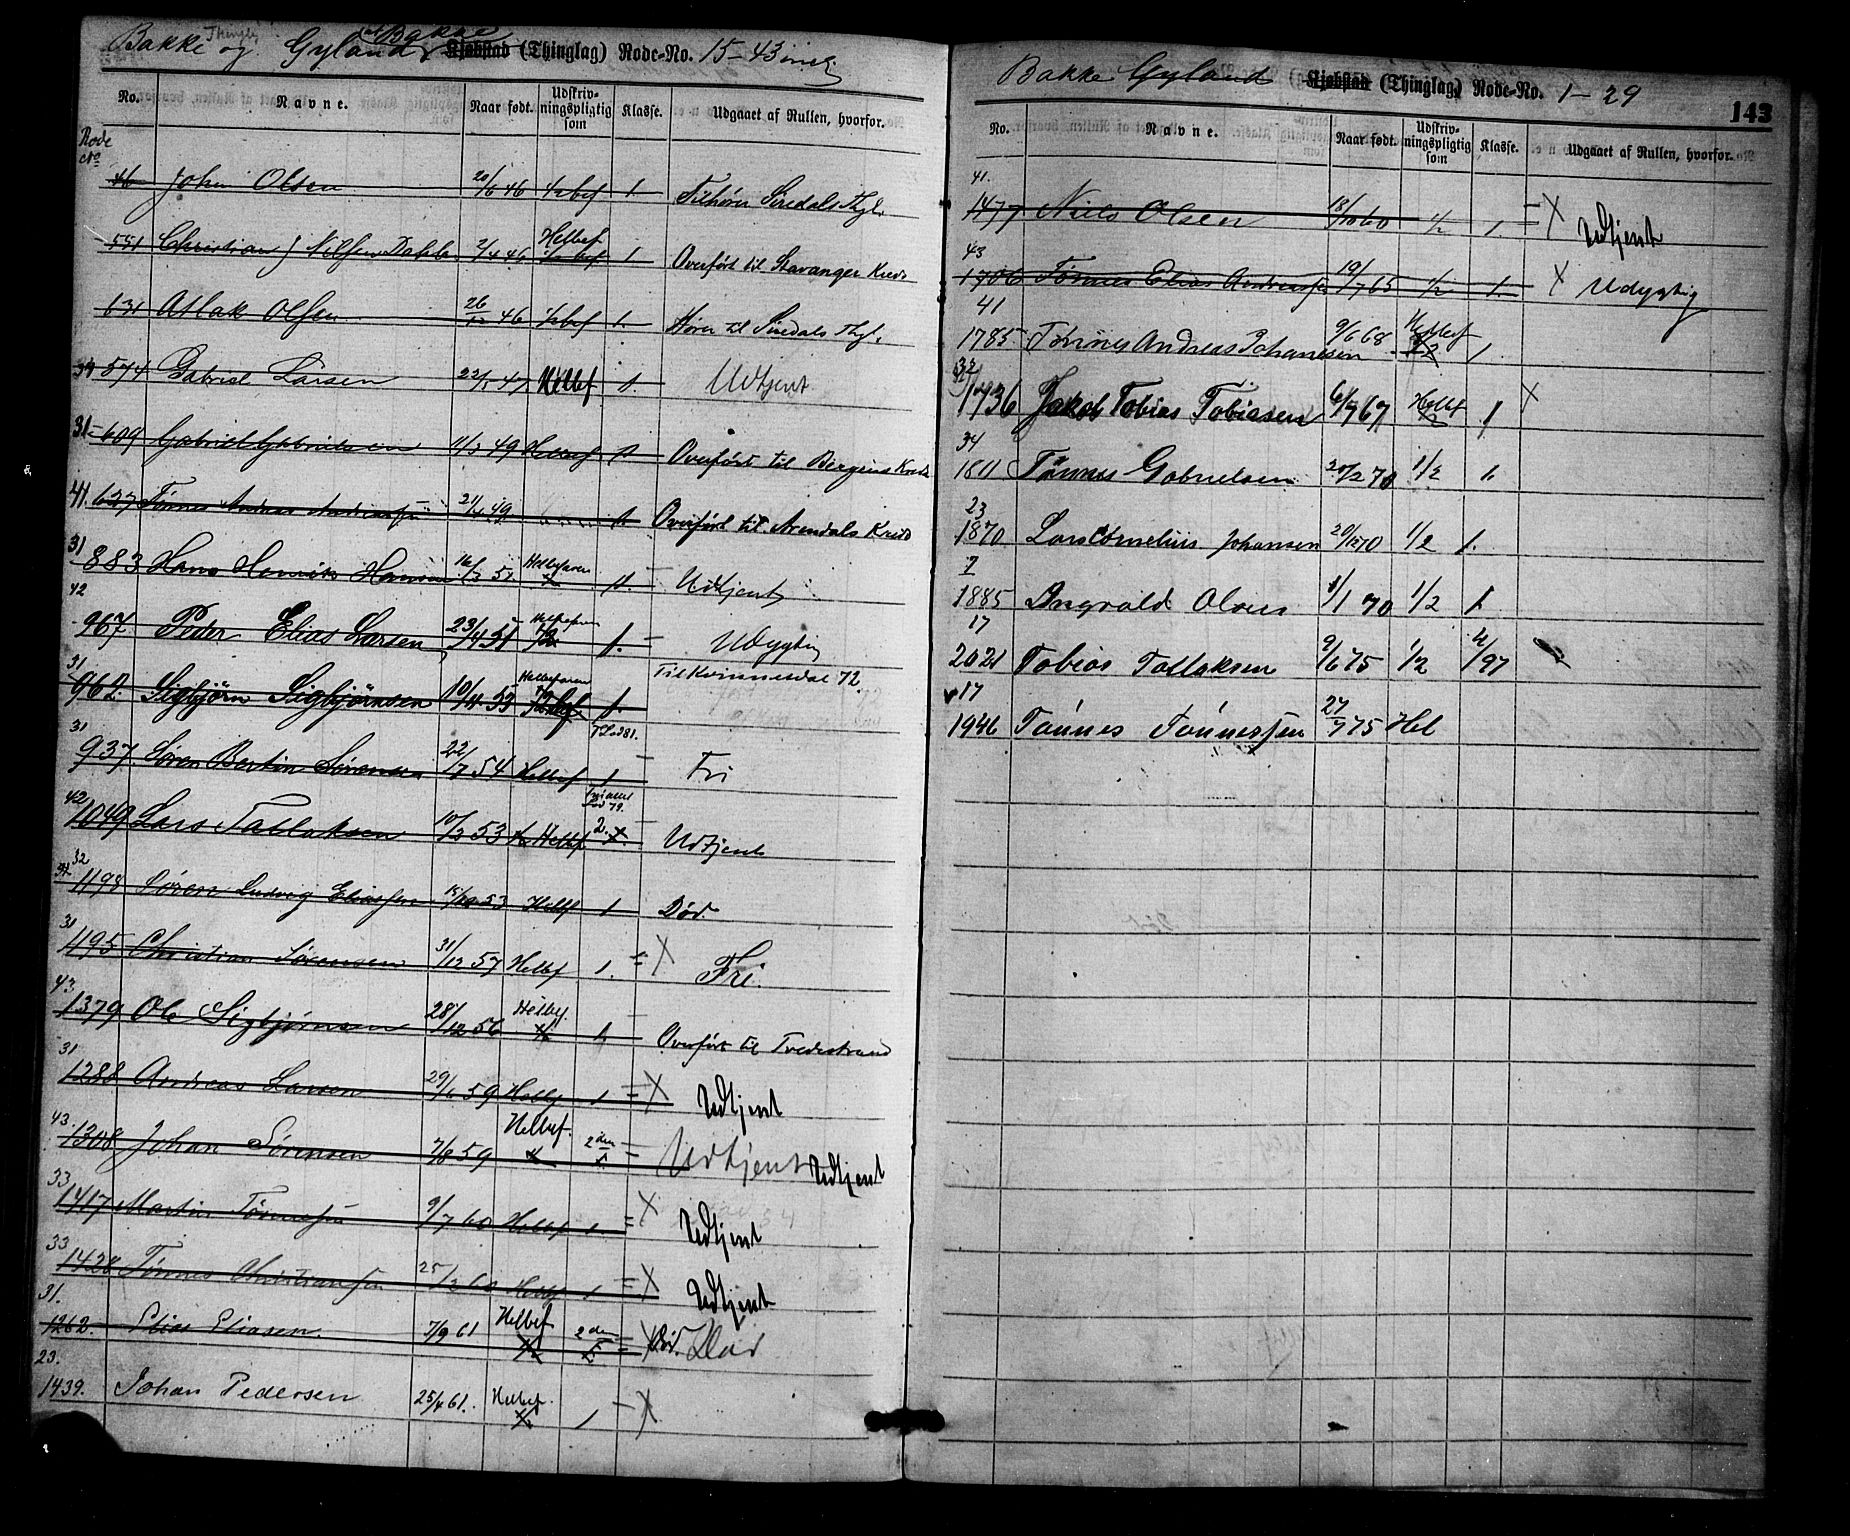 Bakke og Gyland, Bakke Kjøbstad (Thinglag) Rode-No. 15-43 incl
No. Navne. Naar født. Udskrivningspligtig som Klasse. Udgaaet af Rullen, hvorfor.
Rode No
46 John Olsen 20/6 46 1/2 bef 1. Tilhører Siredals Thgl.
551 Christian J Nilsen Dahle 2/4 46 Helbef 1/2 bef 1 Overført til Stavanger Kreds
631 Atlak Olsen 26/12 46 1/2 bef 1. Hører til Siredals Thgl.
39 574 Gabriel Larsen 22/1 47 Helbef 1. Udtjent
31 609 Gabriel Gabrielsen 11/3 49 Helbef 1 Overført til Bergens Kreds
41. 627 Tønnes Andreas Andreassen 21/4 49 1. Overført til Arendals Kreds
31
883 Hans Henrik Hansen 16/3 52 Helbefaren 1/2 1. Udtjent
42
967. Peder Elias Larsen 23/4 51 Helbefaren 1/2 1. Udygtig
31
962. Sigbjørn Sigbjørnsen 10/4 53 Helbefaren 1/2 bef 1. Til Kvinnesdal 72
31
937. Søren Bertin Sørensen 22/7 54 Helbef 1 Fri
42
1049 Lars Tallaksen 10/2 53 Helbef 2. Udtjent
32
1198 Søren Ludvig Eliassen 15/10 53 Helbf 1 Død
31
1195 Christian Sørensen 31/12 57 Helbf 1. = X Fri.
43
1379 Ole Sigbjørnsen 28/12 56 Helbef. 1/2 1. Overført til Tvedestrand
31
1288 Andreas Larsen 29/6 59 Helbf 1 = X Udtjent
43.
1308 Johan Sørensen 7/8 59 Helbef. 1/2 2den = Udtjent Udtjent
33
1417 Martin Tønnessen 9/7 60 Helbf 1 = X Udtjent
33
1428 Tønnes Christiansen 25/2 60 Helbf 1 = X Udtjent
31.
1262. Elias Eliasen. 7/9 61 Helbef 1/2 2den = X Død. Død
23.
1439. Johan Pedersen 25/4 61. Helbef. 1/2 1 - X
Bakke Gyland Kjøbstad (Thinglag) Rode-No. 1-29
143
No. Navne. Naar født. Udskrivningspligtig som Klasse. Udgaaet af Rullen, hvorfor.
41.
1477 Niels Olsen 18/10 60 1/2 1. = X Udtjent
43
1706 Tønnes Elias Andreassen 19/7 65 1/2 1. X Udygtig
41
1785 Tønnes Andreas Johannesen 9/6 68 Helbef 1/2 1.
32
1736 Jakob Tobias Tobiasen 6/7 67 Helbf 1 X
34
1811 Tønnes Gabrielsen 20/2 70 1/2 1.
23
1870 Lars Cornelius Johansen 20/12 70 1/2 1.
7
1885 Ingvald Olsen 1/1 70 1/2 1.
17
2021 Tobias Tallaksen 9/6 75 1/2 2/97
17
1946 Tønnes Tønnessen 27/7 75 Hel